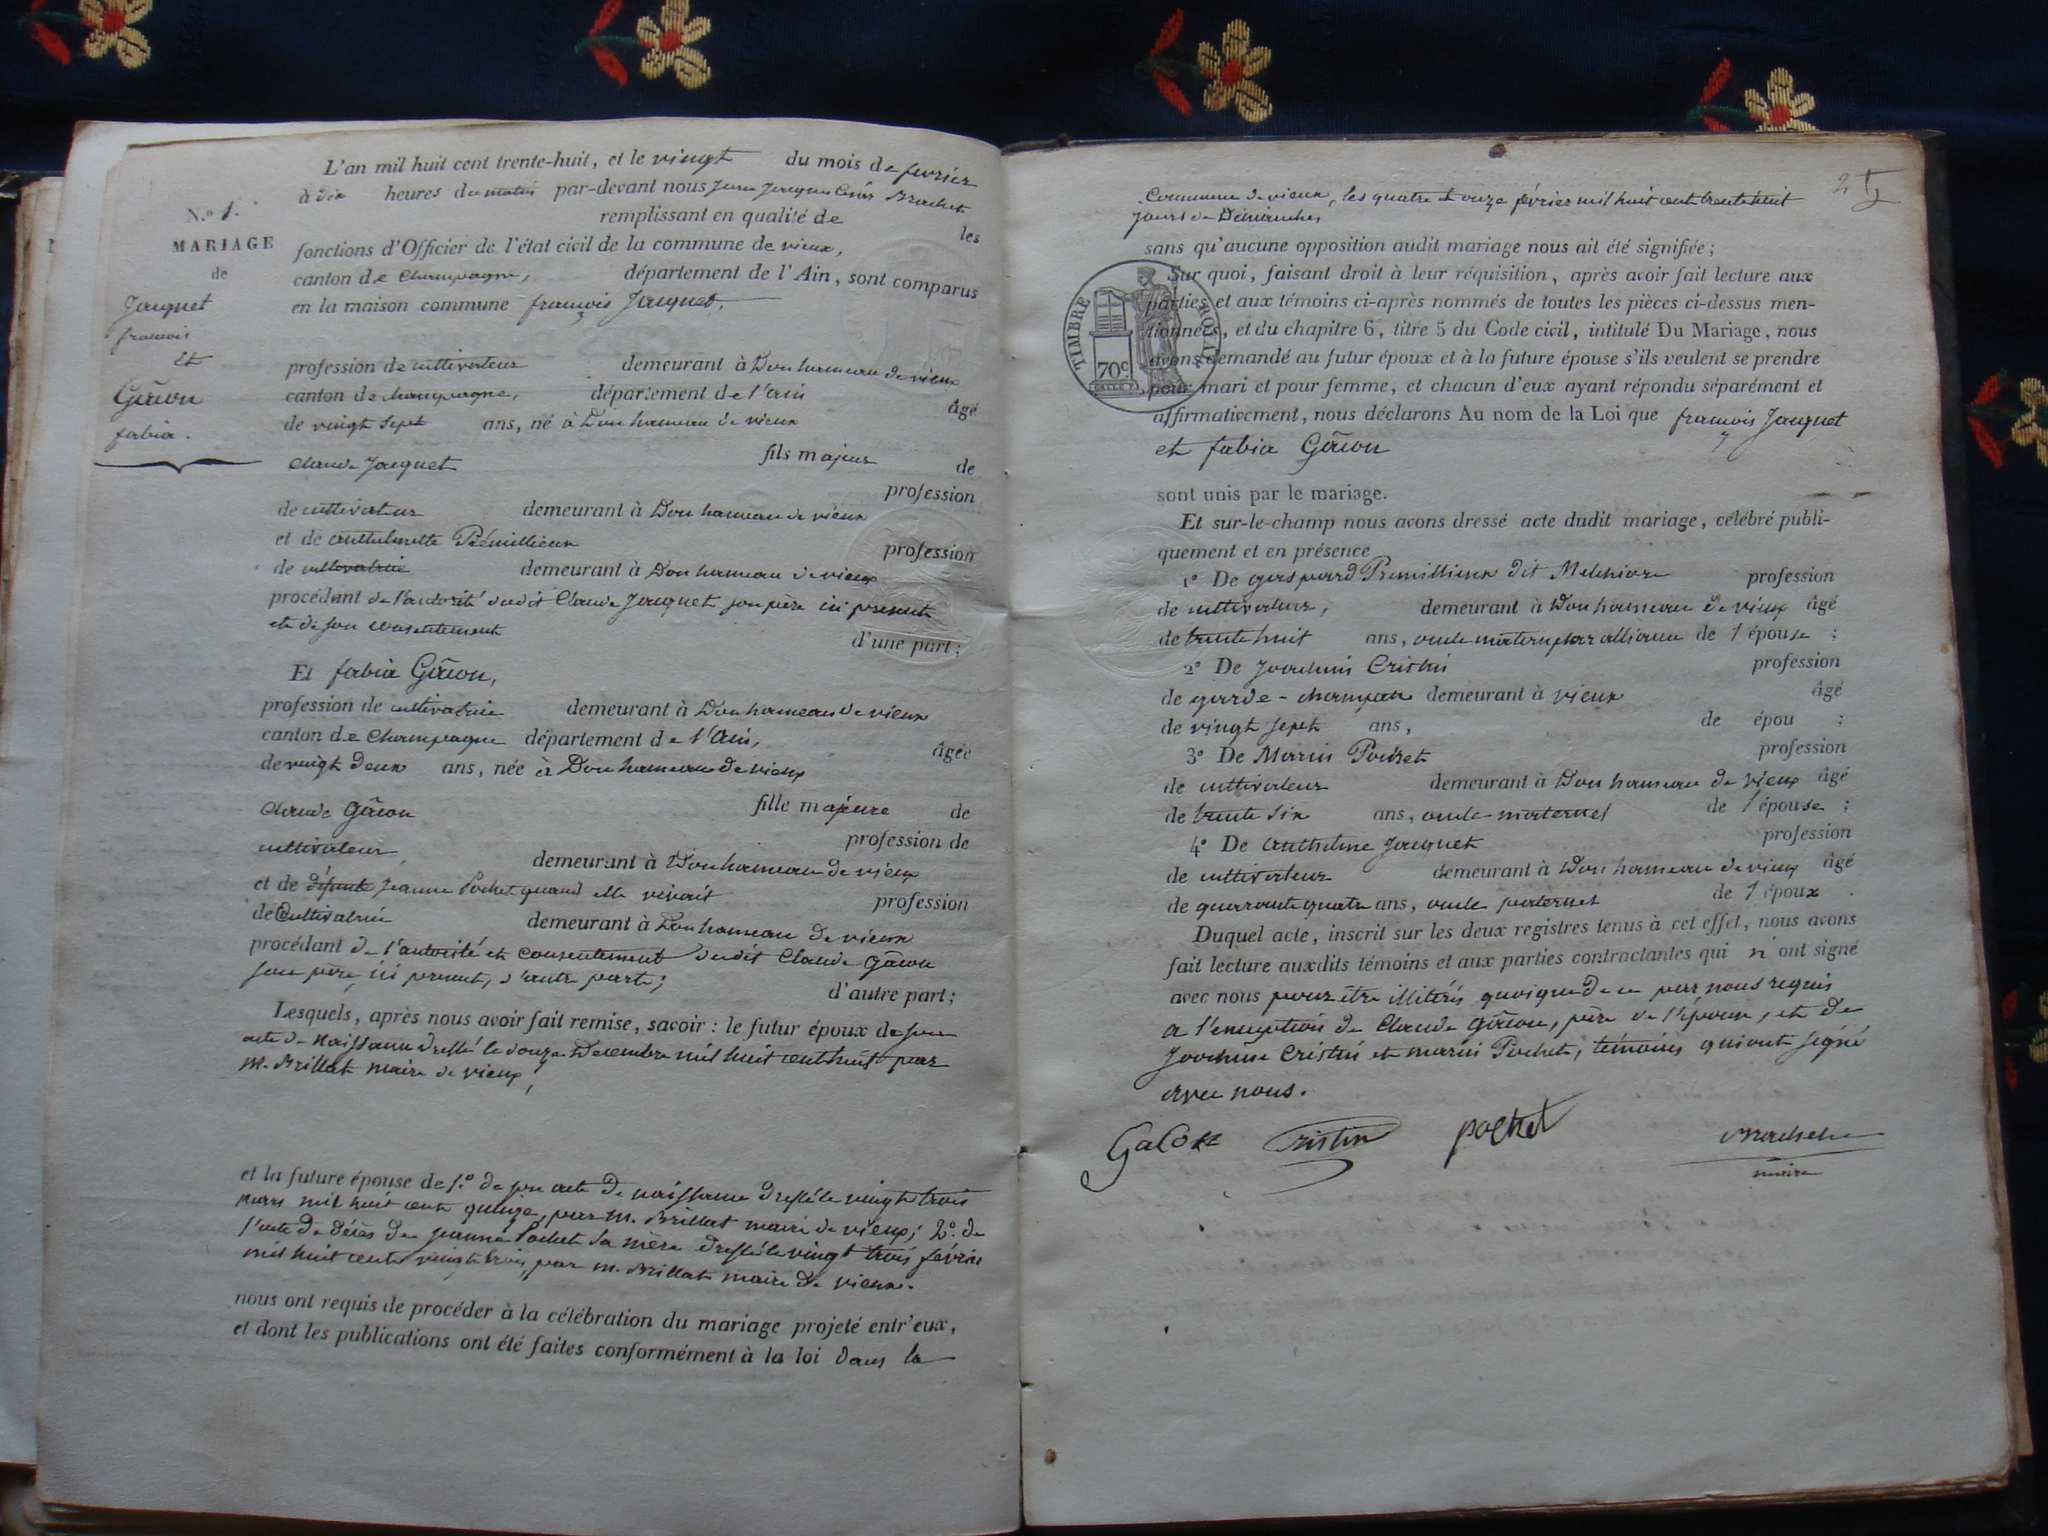 N.º 1.
MARIAGE
de
Jauquet
françois
Et
Gâcon
fabia.
L'an mil huit cent trente-huit, et le vingt du mois de fevrier
à dix heures du matin par-devant nous Jean Jacques César Brachet
remplissant en qualité de les
fonctions d'Officier de l'état civil de la commune de vieux,
canton de Champagne, département de l'Ain, sont comparus
en la maison commune françois Jauquet,
profession de cultivateur demeurant à Don hameau de vieux
canton de champagne, département de l'ain âgé
de vingt sept ans, né à Don hameau de vieux
Claude Jauquet fils majeur de
profession
de cultivateur demeurant à Don hameau de vieux
et de anthelmette Prémillieux profession
de cultivatrice demeurant à Don hameau de vieux
procédant de l'autorité dudit Claude Jauquet son père ici present
et de son consentement d'une part;
Et fabia Gâcon,
profession de cultivatrice demeurant à Don hameau de vieux
canton de Champagne département de l'Ain, âgée
de vingt deux ans, née à Don hameau de vieux
Claude Gâcon fille majeure de
profession de
cultivateur demeurant à Don hameau de vieux
et de défunte Jeanne Pochet quand elle vivait profession
de Cultivatrice demeurant à Don hameau de vieux
procédant de l'autorité et consentement dudit Claude Gâcon
son père, ici present, d'autre part; d'autre part;
Lesquels, après nous avoir fait remise, savoir : le futur époux de son
acte de Naissance dressé le douze Decembre mil huit cent huit par
M. Brillat maire de vieux,
et la future épouse de 1.º de son acte de naissance dressé le vingt trois
mars mil huit cent quinze, par M. Brillat maire de vieux; 2.º de
l'acte de décès de jeanne Pochet sa mère dressé le vingt trois février
mil huit cent vingt trois, par M. Brillat maire de vieux.
nous ont requis de procéder à la célébration du mariage projeté entr'eux,
et dont les publications ont été faites conformément à la loi dans la
2
Commune de vieux, les quatre et onze février mil huit cent trente huit
jours de Dimanches
sans qu'aucune opposition audit mariage nous ait été signifiée;
Sur quoi, faisant droit à leur réquisition, après avoir fait lecture aux
parties et aux témoins ci-après nommés de toutes les pièces ci-dessus men-
tionnées, et du chapitre 6, titre 5 du Code civil, intitulé Du Mariage, nous
avons demandé au futur époux et à la future épouse s'ils veulent se prendre
pour mari et pour femme, et chacun d'eux ayant répondu séparément et
affirmativement, nous déclarons Au nom de la Loi que françois Jauquet
et fabia Gâcon
TIMBRE ROYAL
70c
sont unis par le mariage.
Et sur-le-champ nous avons dressé acte dudit mariage, célébré publi-
quement et en présence
1º De gaspard Premillieux dit Melchiore profession
de cultivateur, demeurant à Don hameau de vieux âgé
de trente huit ans, oncle matern par alliance de l'épouse ;
2º De Joachim Cristin profession
de garde-champetre demeurant à vieux âgé
de vingt sept ans, de épou ;
3º De Marin Pochet profession
de cultivateur demeurant à Don hameau de vieux âgé
de trente six ans, oncle maternel de l'épouse ;
4º De Anthelme Jauquet profession
de cultivateur demeurant à Don hameau de vieux âgé
de quarante quatre ans, oncle paternel de l'époux .
Duquel acte, inscrit sur les deux registres tenus à cet effet, nous avons
fait lecture auxdits témoins et aux parties contractantes qui n'ont signé
avec nous pour être illitérés quoique de ce par nous requis
a l'exception de Claude Gâcon, père de l'épouse, et de
Joachim Cristin et marin Pochet, témoins qui ont signé
avec nous.
GaCon Cristin pochet Brachet
maire